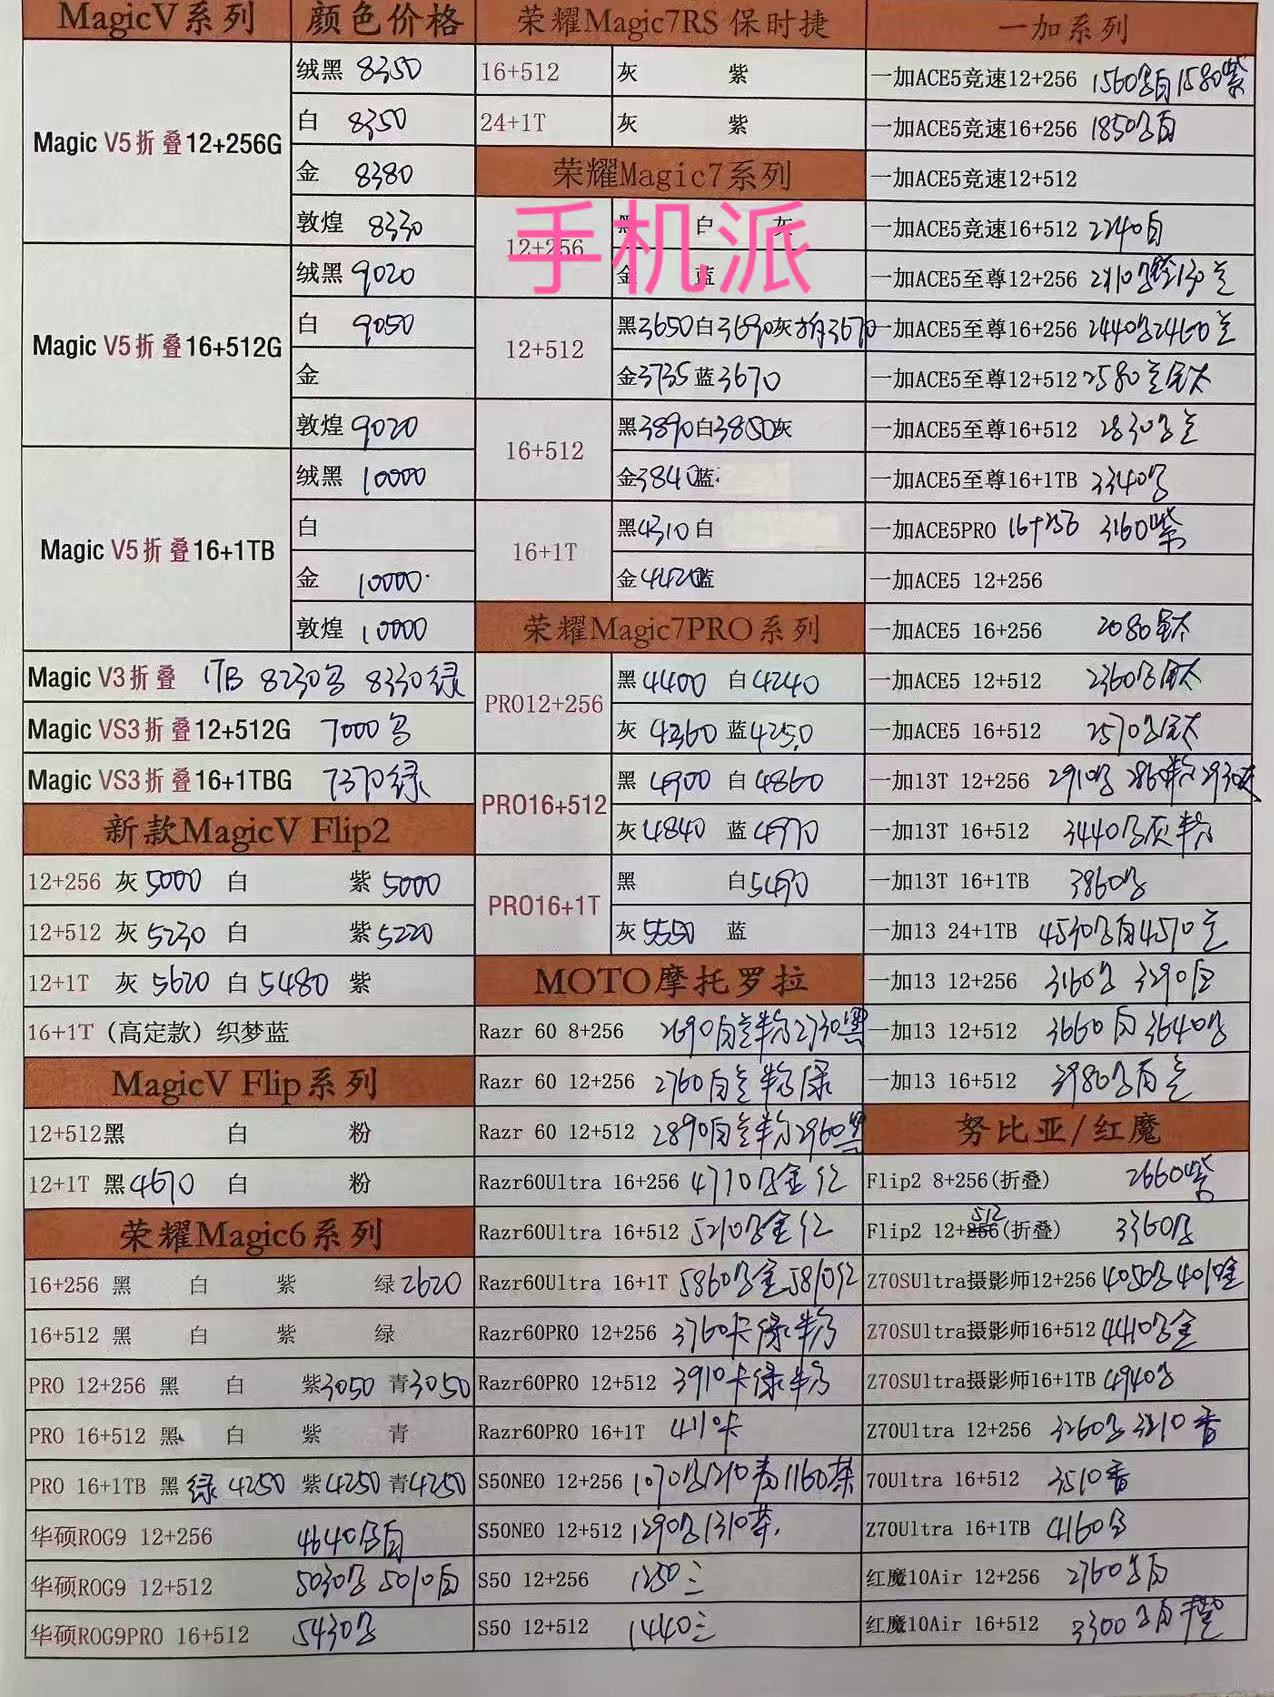 MagicV系列 颜色价格
Magic V5折叠12+256G
绒黑 8350
白 8350
金 8380
敦煌 8330
Magic V5折叠16+512G
绒黑 9020
白 9050
金
敦煌 9020
Magic V5折叠16+1TB
绒黑 10000
白
金 10000
敦煌 10000
Magic V3折叠 1TB 8230 8330绿
Magic VS3折叠12+512G 7000
Magic VS3折叠16+1TBG 7370绿
新款MagicV Flip2
12+256 灰5000 白 紫5000
12+512 灰5230 白 紫5220
12+1T 灰5620 白5480 紫
16+1T（高定款）织梦蓝
MagicV Flip系列
12+512黑 白 粉
12+1T 黑4670 白 粉
荣耀Magic6系列
16+256 黑 白 紫 绿2620
16+512 黑 白 紫 绿
PRO 12+256 黑 白 紫3050 青3050
PRO 16+512 黑 白 紫 青
PRO 16+1TB 黑 绿4250 紫4250 青4250
华硕ROG9 12+256 4640 白
华硕ROG9 12+512 5030 5010白
华硕ROG9PRO 16+512 5430
荣耀Magic7RS 保时捷
16+512 灰 紫
24+1T 灰 紫
荣耀Magic7系列
手机派
12+256
黑 白 灰
金 蓝
12+512
黑3650白3690灰 3670
金3735蓝3670
16+512
黑3890白3850灰
金3840蓝
16+1T
黑4310白
金4420蓝
荣耀Magic7PRO系列
PRO12+256
黑4400 白4240
灰4360 蓝4250
PRO16+512
黑4900 白4860
灰4840 蓝4970
PRO16+1T
黑 白5490
灰5550 蓝
MOTO摩托罗拉
Razr 60 8+256 2690白兰粉2730黑
Razr 60 12+256 2760白兰粉绿
Razr 60 12+512 2890白兰粉2960黑
Razr60Ultra 16+256 4710 金红
Razr60Ultra 16+512 5210 金红
Razr60Ultra 16+1T 5860 金5810红
Razr60PRO 12+256 3760卡绿粉
Razr60PRO 12+512 3910卡绿粉
Razr60PRO 16+1T 4110卡
S50NEO 12+256 1070 1210青1160茶
S50NEO 12+512 1290 1310茶
S50 12+256 1250三
S50 12+512 1440三
一加系列
一加ACE5竞速12+256 1560 白1580紫
一加ACE5竞速16+256 1850 白
一加ACE5竞速12+512
一加ACE5竞速16+512 2240白
一加ACE5至尊12+256
一加ACE5至尊16+256 2440 2460兰
一加ACE5至尊12+512 2580兰钛
一加ACE5至尊16+512 2830 兰
一加ACE5至尊16+1TB 3340
一加ACE5PRO 16+256 3160紫
一加ACE5 12+256
一加ACE5 16+256 2080钛
一加ACE5 12+512 2360 钛
一加ACE5 16+512 2570 钛
一加13T 12+256 2910 2860粉2930灰
一加13T 16+512 3440 灰粉
一加13T 16+1TB 3860
一加13 24+1TB 4530 白4570兰
一加13 12+256 3160 3290白
一加13 12+512 3660白3640
一加13 16+512 3980 白兰
努比亚/红魔
Flip2 8+256(折叠) 2660紫
Flip2 12+512(折叠) 3360
Z70SUltra摄影师12+256 4050 4010金
Z70SUltra摄影师16+512 4410 金
Z70SUltra摄影师16+1TB 4940
Z70Ultra 12+256 3260 3210香
70Ultra 16+512 3510香
Z70Ultra 16+1TB 4160
红魔10Air 12+256 2760 白
红魔10Air 16+512 3300 白橙